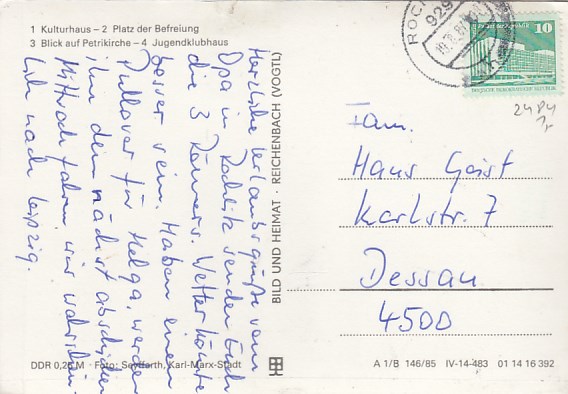 1 Kulturhaus – 2 Platz der Befreiung
3 Blick auf Petrikirche – 4 Jugendklubhaus
Herzliche Urlaubsgrüße vom
Opa in Rochlitz senden Euch
die 3 Römers. Wetter könnte
besser sein. Haben einen
Pullover für Helga, werden
ihn demnächst abschicken.
Mittwoch fahren wir wahrschein-
lich nach Leipzig.
BILD UND HEIMAT · REICHENBACH (VOGTL)
ROCH
929
10
DEUTSCHE DEMOKRATISCHE REPUBLIK
2484
Fam.
Hans Geist
Karlstr. 7
Dessau
4500
DDR 0,25 M · Foto: Seyfarth, Karl-Marx-Stadt
A 1/B 146/85 IV-14-483 01 14 16 392